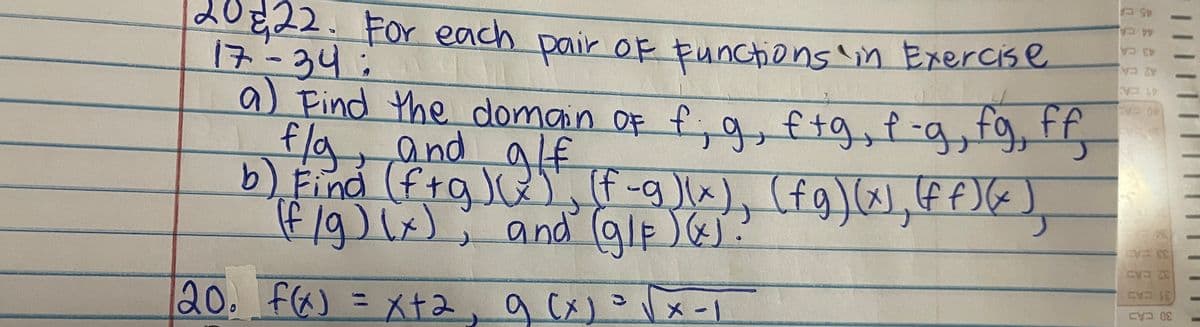 20 & 22. For each pair of functions in Exercise
17-34:
a) Find the domain of f, g, f+g, f-g, fg, ff,
f/g, and g/f
b) Find (f+g)(x), (f-g)(x), (fg)(x), (ff)(x),
(f/g)(x), and (g/f)(x).
20. f(x) = x+2, g(x) = √x-1